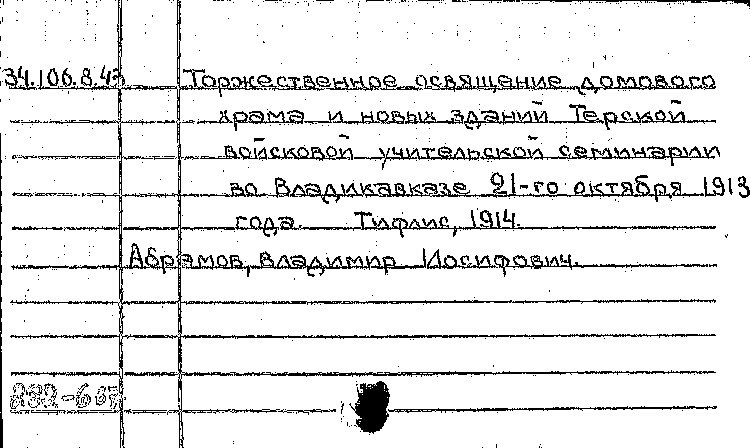 34.106.8.43 Торжественное освящение домового
храма и новых зданий Терской
войсковой учительской семинарии
во Владикавказе 21-го октября 1913
года. Тифлис, 1914.
Абрамов, Владимир Иосифович.